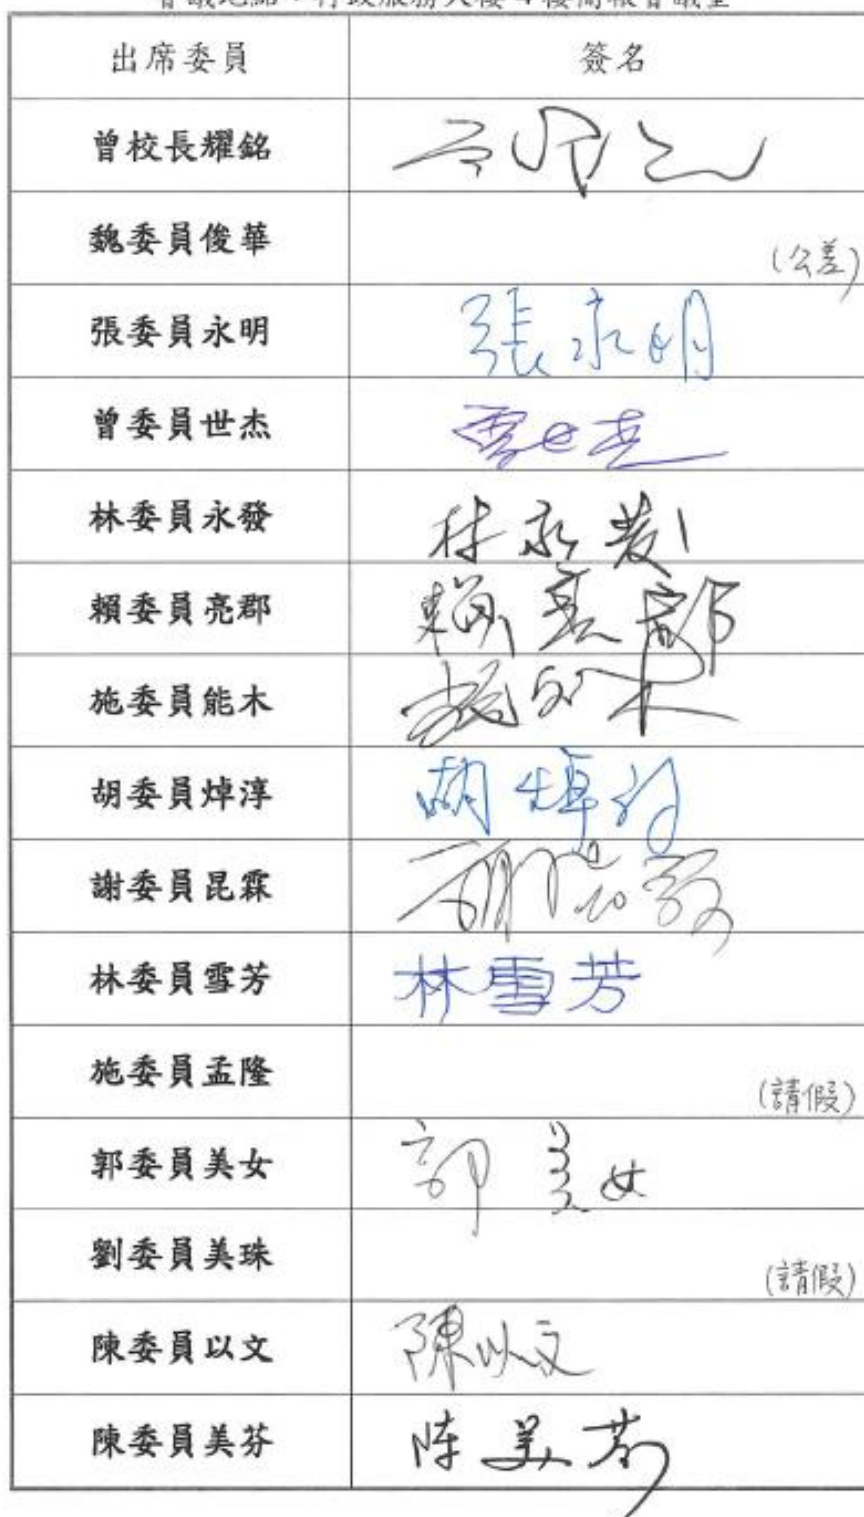 出席委員 簽名
曾校長耀銘
魏委員俊華 (公差)
張委員永明 張永明
曾委員世杰 曾世杰
林委員永發 林永發
賴委員亮郡 賴亮郡
施委員能木 施能木
胡委員焯淳 胡焯淳
謝委員昆霖
林委員雪芳 林雪芳
施委員孟隆 (請假)
郭委員美女 郭美女
劉委員美珠 (請假)
陳委員以文 陳以文
陳委員美芬 陈美芬